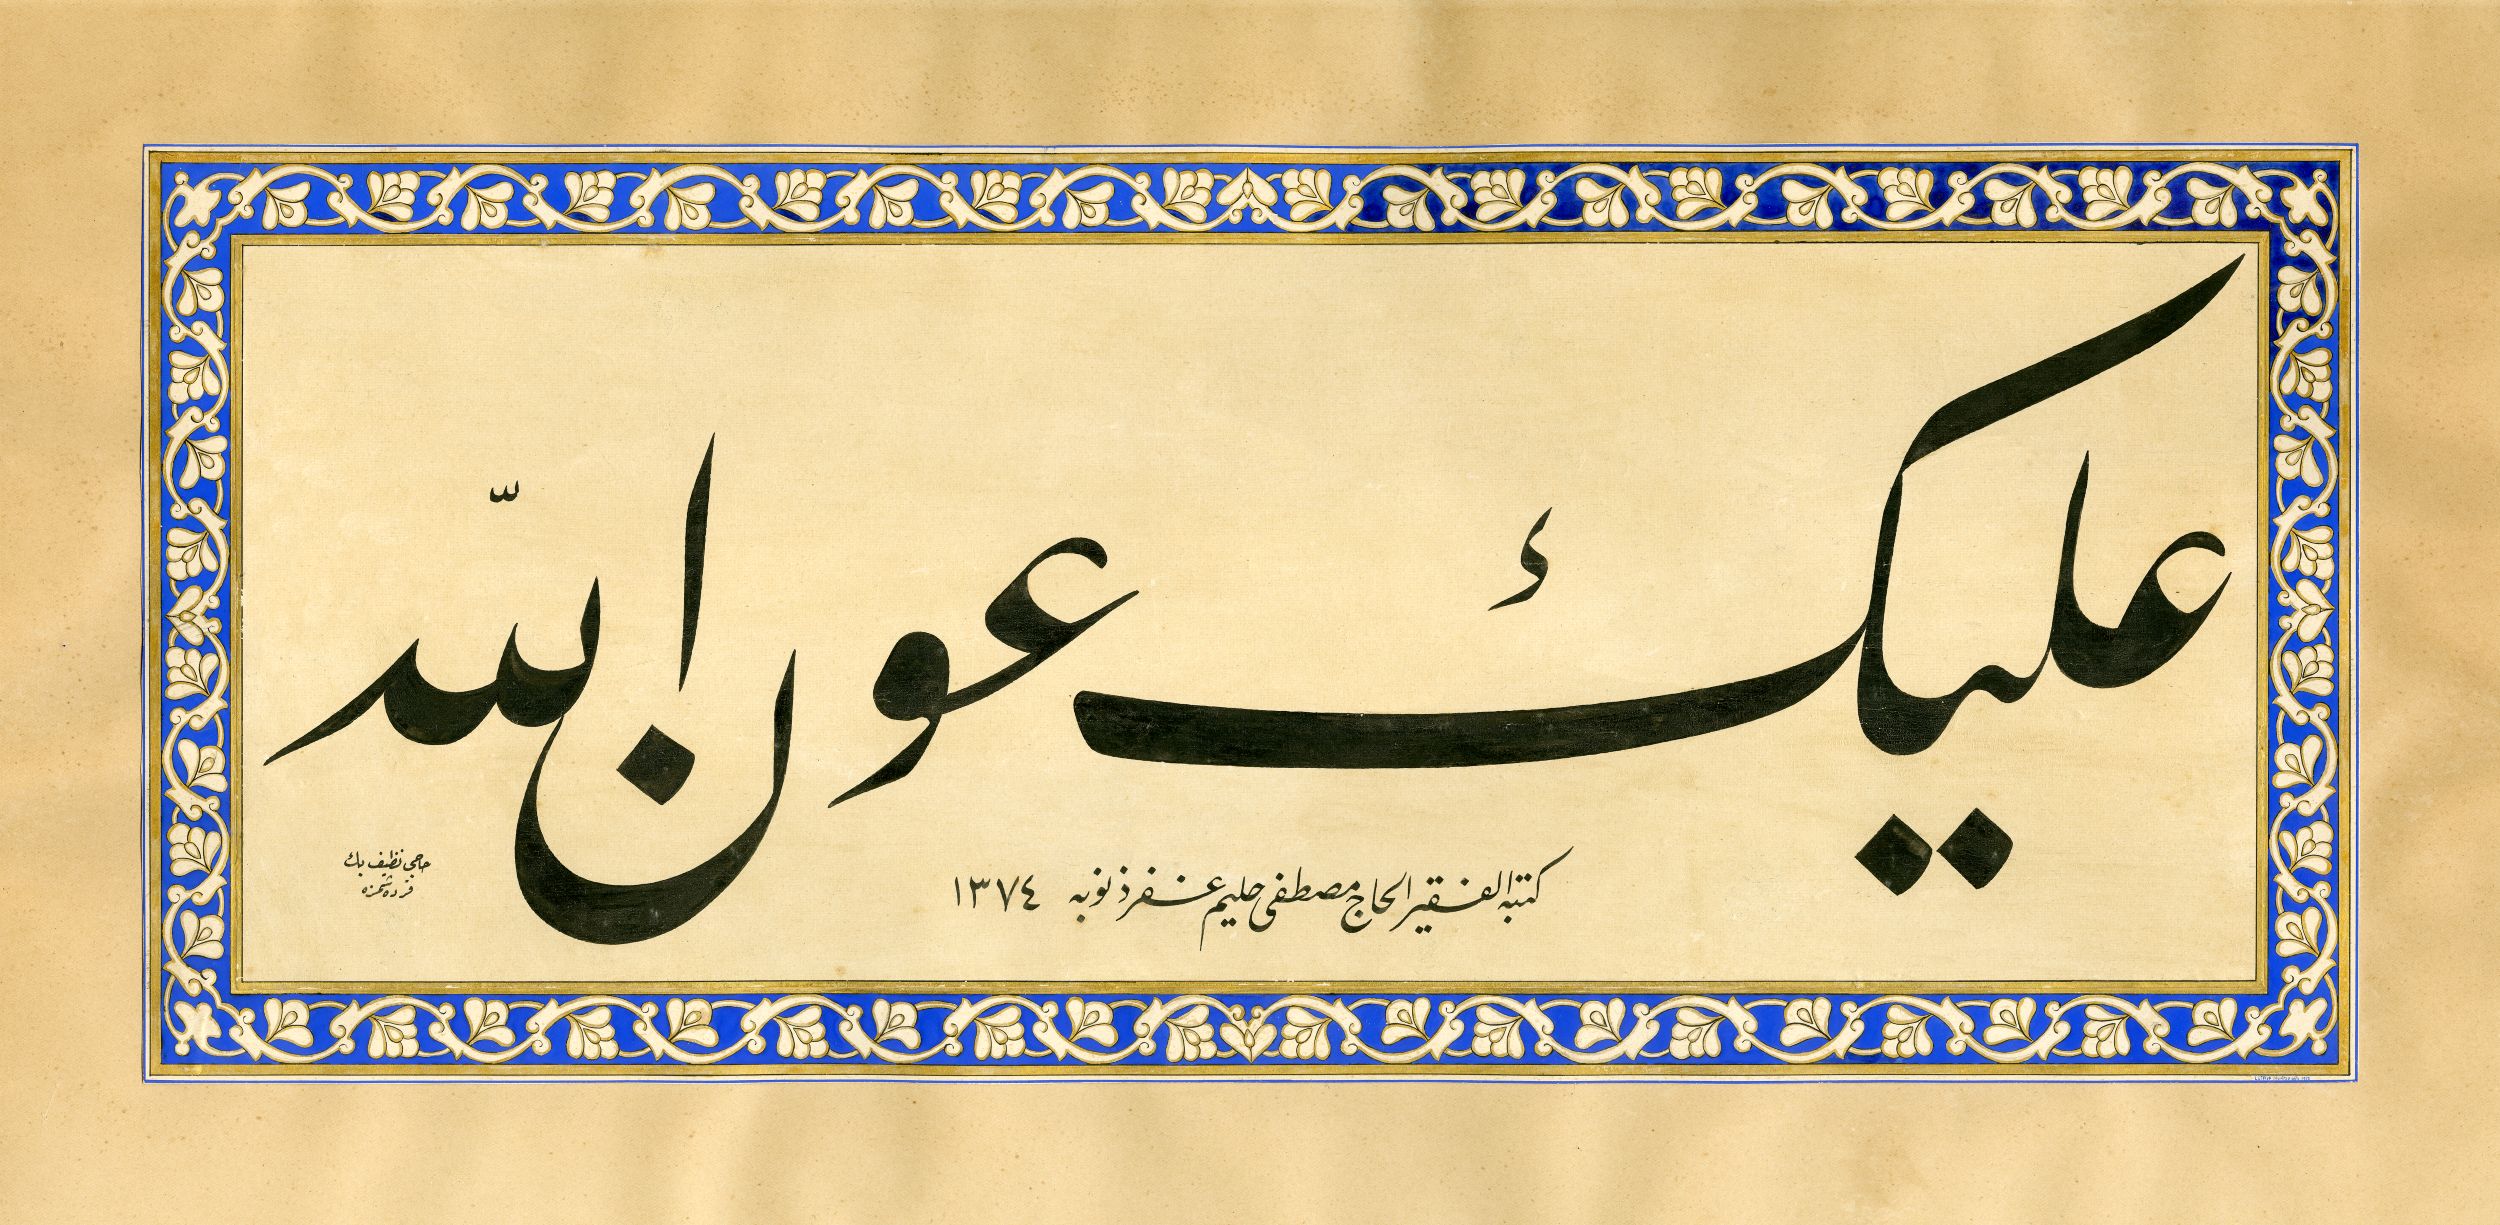 عليك عون الله
كتبه الفقير الحاج مصطفى حليم غفر ذنوبه ١٣٧٤
حاجى نظيف بك